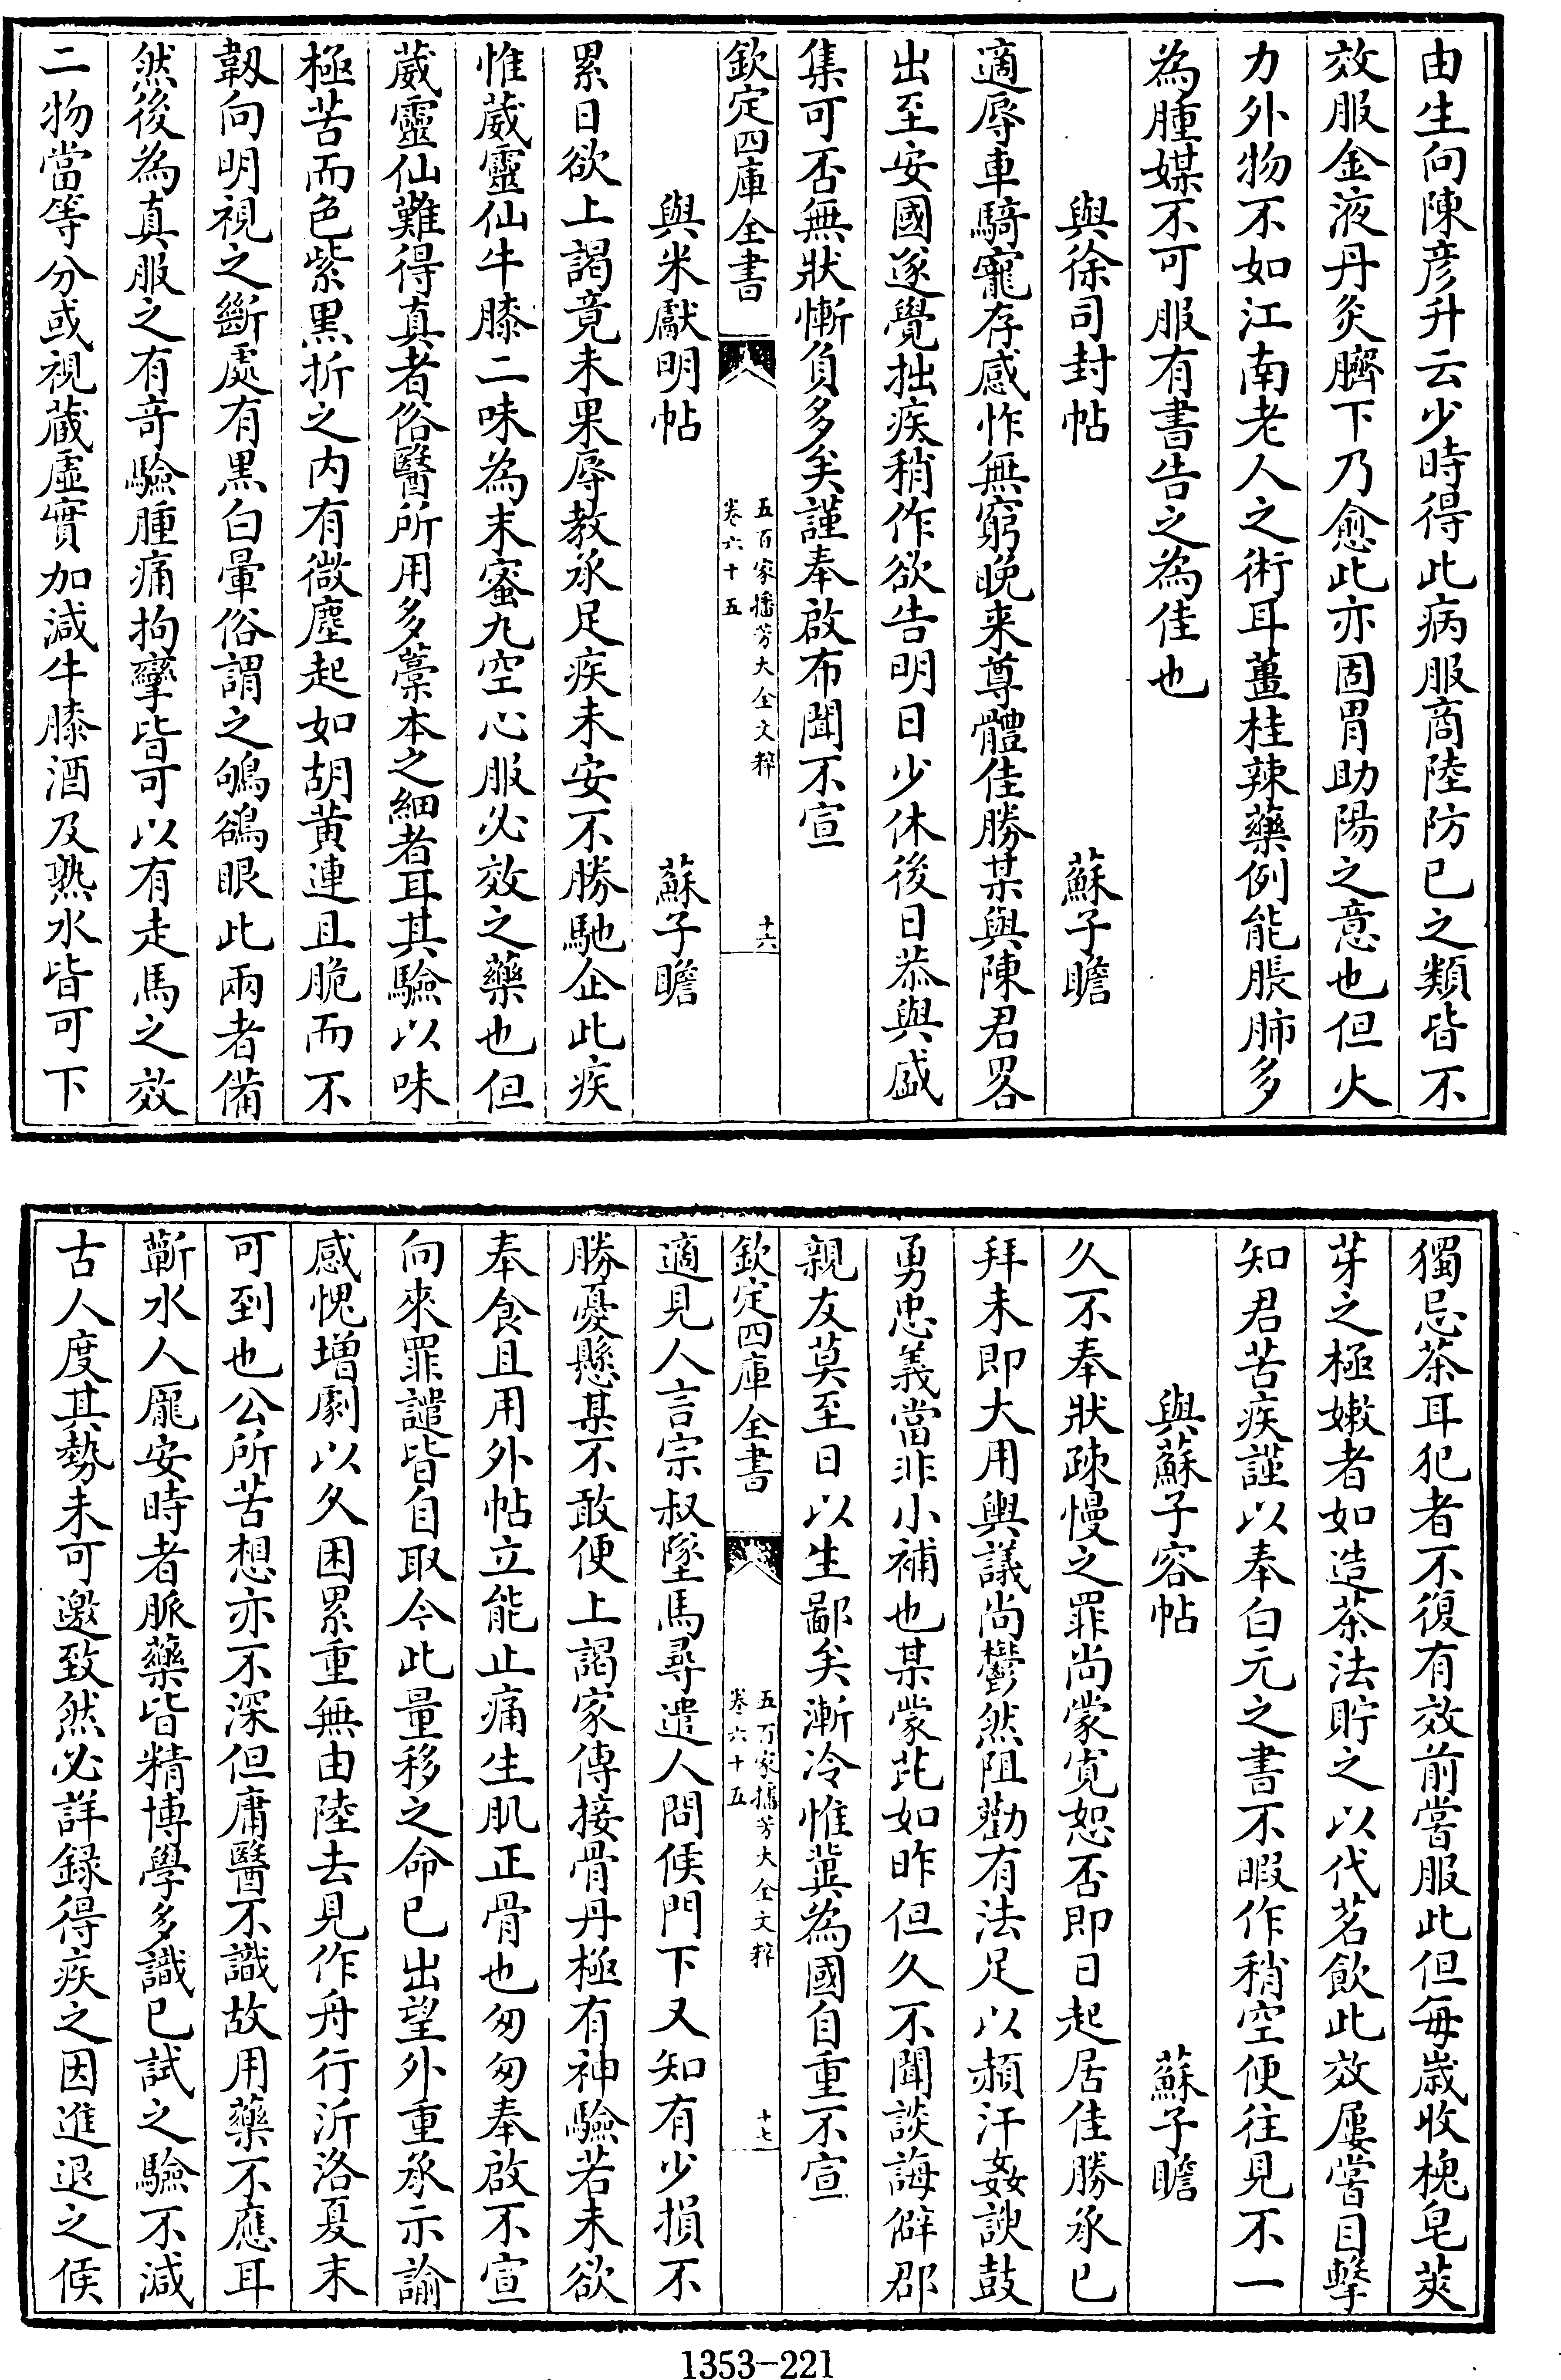 由生向陳彦升云少時得此病服商陸防已之類皆不
效服金液丹灸臍下乃愈此亦固胃助陽之意也但火
力外物不如江南老人之術耳薑桂辣藥例能脹肺多
為腫媒不可服有書告之為佳也
與徐司封帖　蘇子瞻
適辱車騎寵存感怍無窮晚来尊體佳勝某與陳君畧
出至安國遂覺拙疾稍作欲告明日少休後日恭與盛
集可否無狀慚負多矣謹奉啟布聞不宣
欽定四庫全書
五百家播芳大全文粹
卷六十五
十六
與米獻明帖　蘇子瞻
累日欲上謁竟未果辱教承足疾未安不勝馳企此疾
惟葳靈仙牛膝二味為末蜜九空心服必效之藥也但
葳靈仙難得真者俗醫所用多藁本之細者耳其驗以味
極苦而色紫黒折之内有微塵起如胡黄連且脆而不
韌向明視之斷處有黒白暈俗謂之鴝鵒眼此兩者備
然後為真服之有竒驗腫痛拘攣皆可以有走馬之效
二物當等分或視蔵虚實加減牛膝酒及熟水皆可下
獨忌茶耳犯者不復有效前嘗服此但每嵗收槐皂莢
芽之極嫩者如造茶法貯之以代茗飲此效屢嘗目擊
知君苦疾謹以奉白元之書不暇作稍空便往見不一
與蘇子容帖　蘇子瞻
久不奉狀疎慢之罪尚蒙寛恕否即日起居佳勝承已
拜未即大用輿議尚鬱然阻勸有法足以頳汗姦諛鼓
勇忠義當非小補也某蒙芘如昨但久不聞談誨僻郡
親友莫至日以生鄙矣漸冷惟冀為國自重不宣
欽定四庫全書
五百家播芳大全文粹
卷六十五
十七
適見人言宗叔墜馬尋遣人問候門下又知有少損不
勝憂懸某不敢便上謁家傳接骨丹極有神驗若未欲
奉食且用外帖立能止痛生肌正骨也匆匆奉啟不宣
向來罪譴皆自取今此量移之命已出望外重承示諭
感愧增劇以久困累重無由陸去見作舟行沂洛夏末
可到也公所苦想亦不深但庸醫不識故用藥不應耳
蘄水人龎安時者脈藥皆精博學多識已試之驗不減
古人度其勢未可邀致然必詳録得疾之因進退之候
1353-221